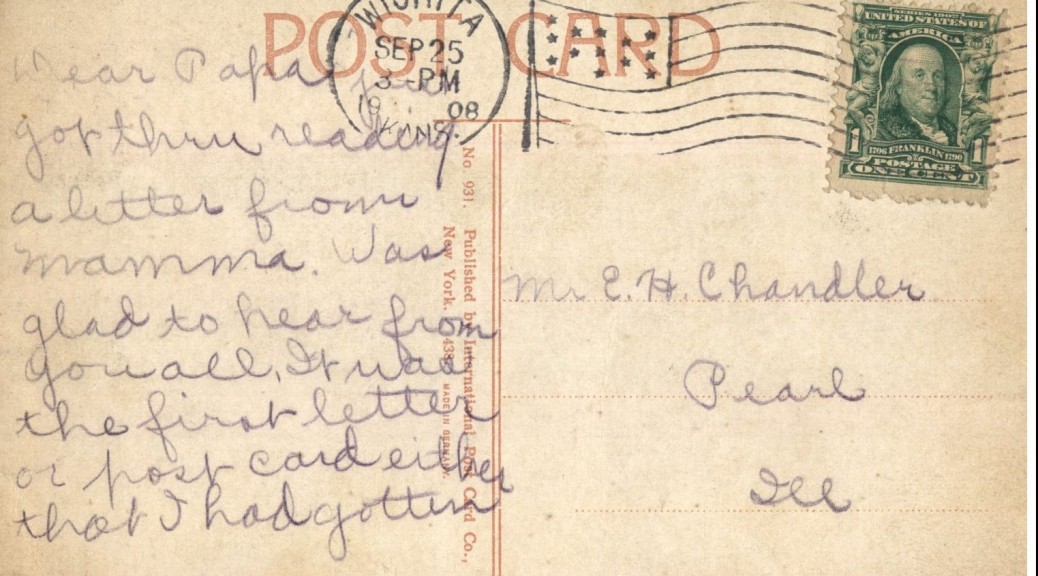 POST CARD
WICHITA
SEP 25
3-PM
1908
KANS.
SERIES 1902
UNITED STATES OF
AMERICA
1 1
1706 FRANKLIN 1790
POSTAGE
ONE CENT
Dear Papa just
got thru reading
a letter from
mamma. Was
glad to hear from
you all, It was
the first letter
or post card either
that I had gotten
No. 931. Published by International Post Card Co.,
New York. 438
MADE IN GERMANY.
Mr E. H. Chandler
Pearl
Ill